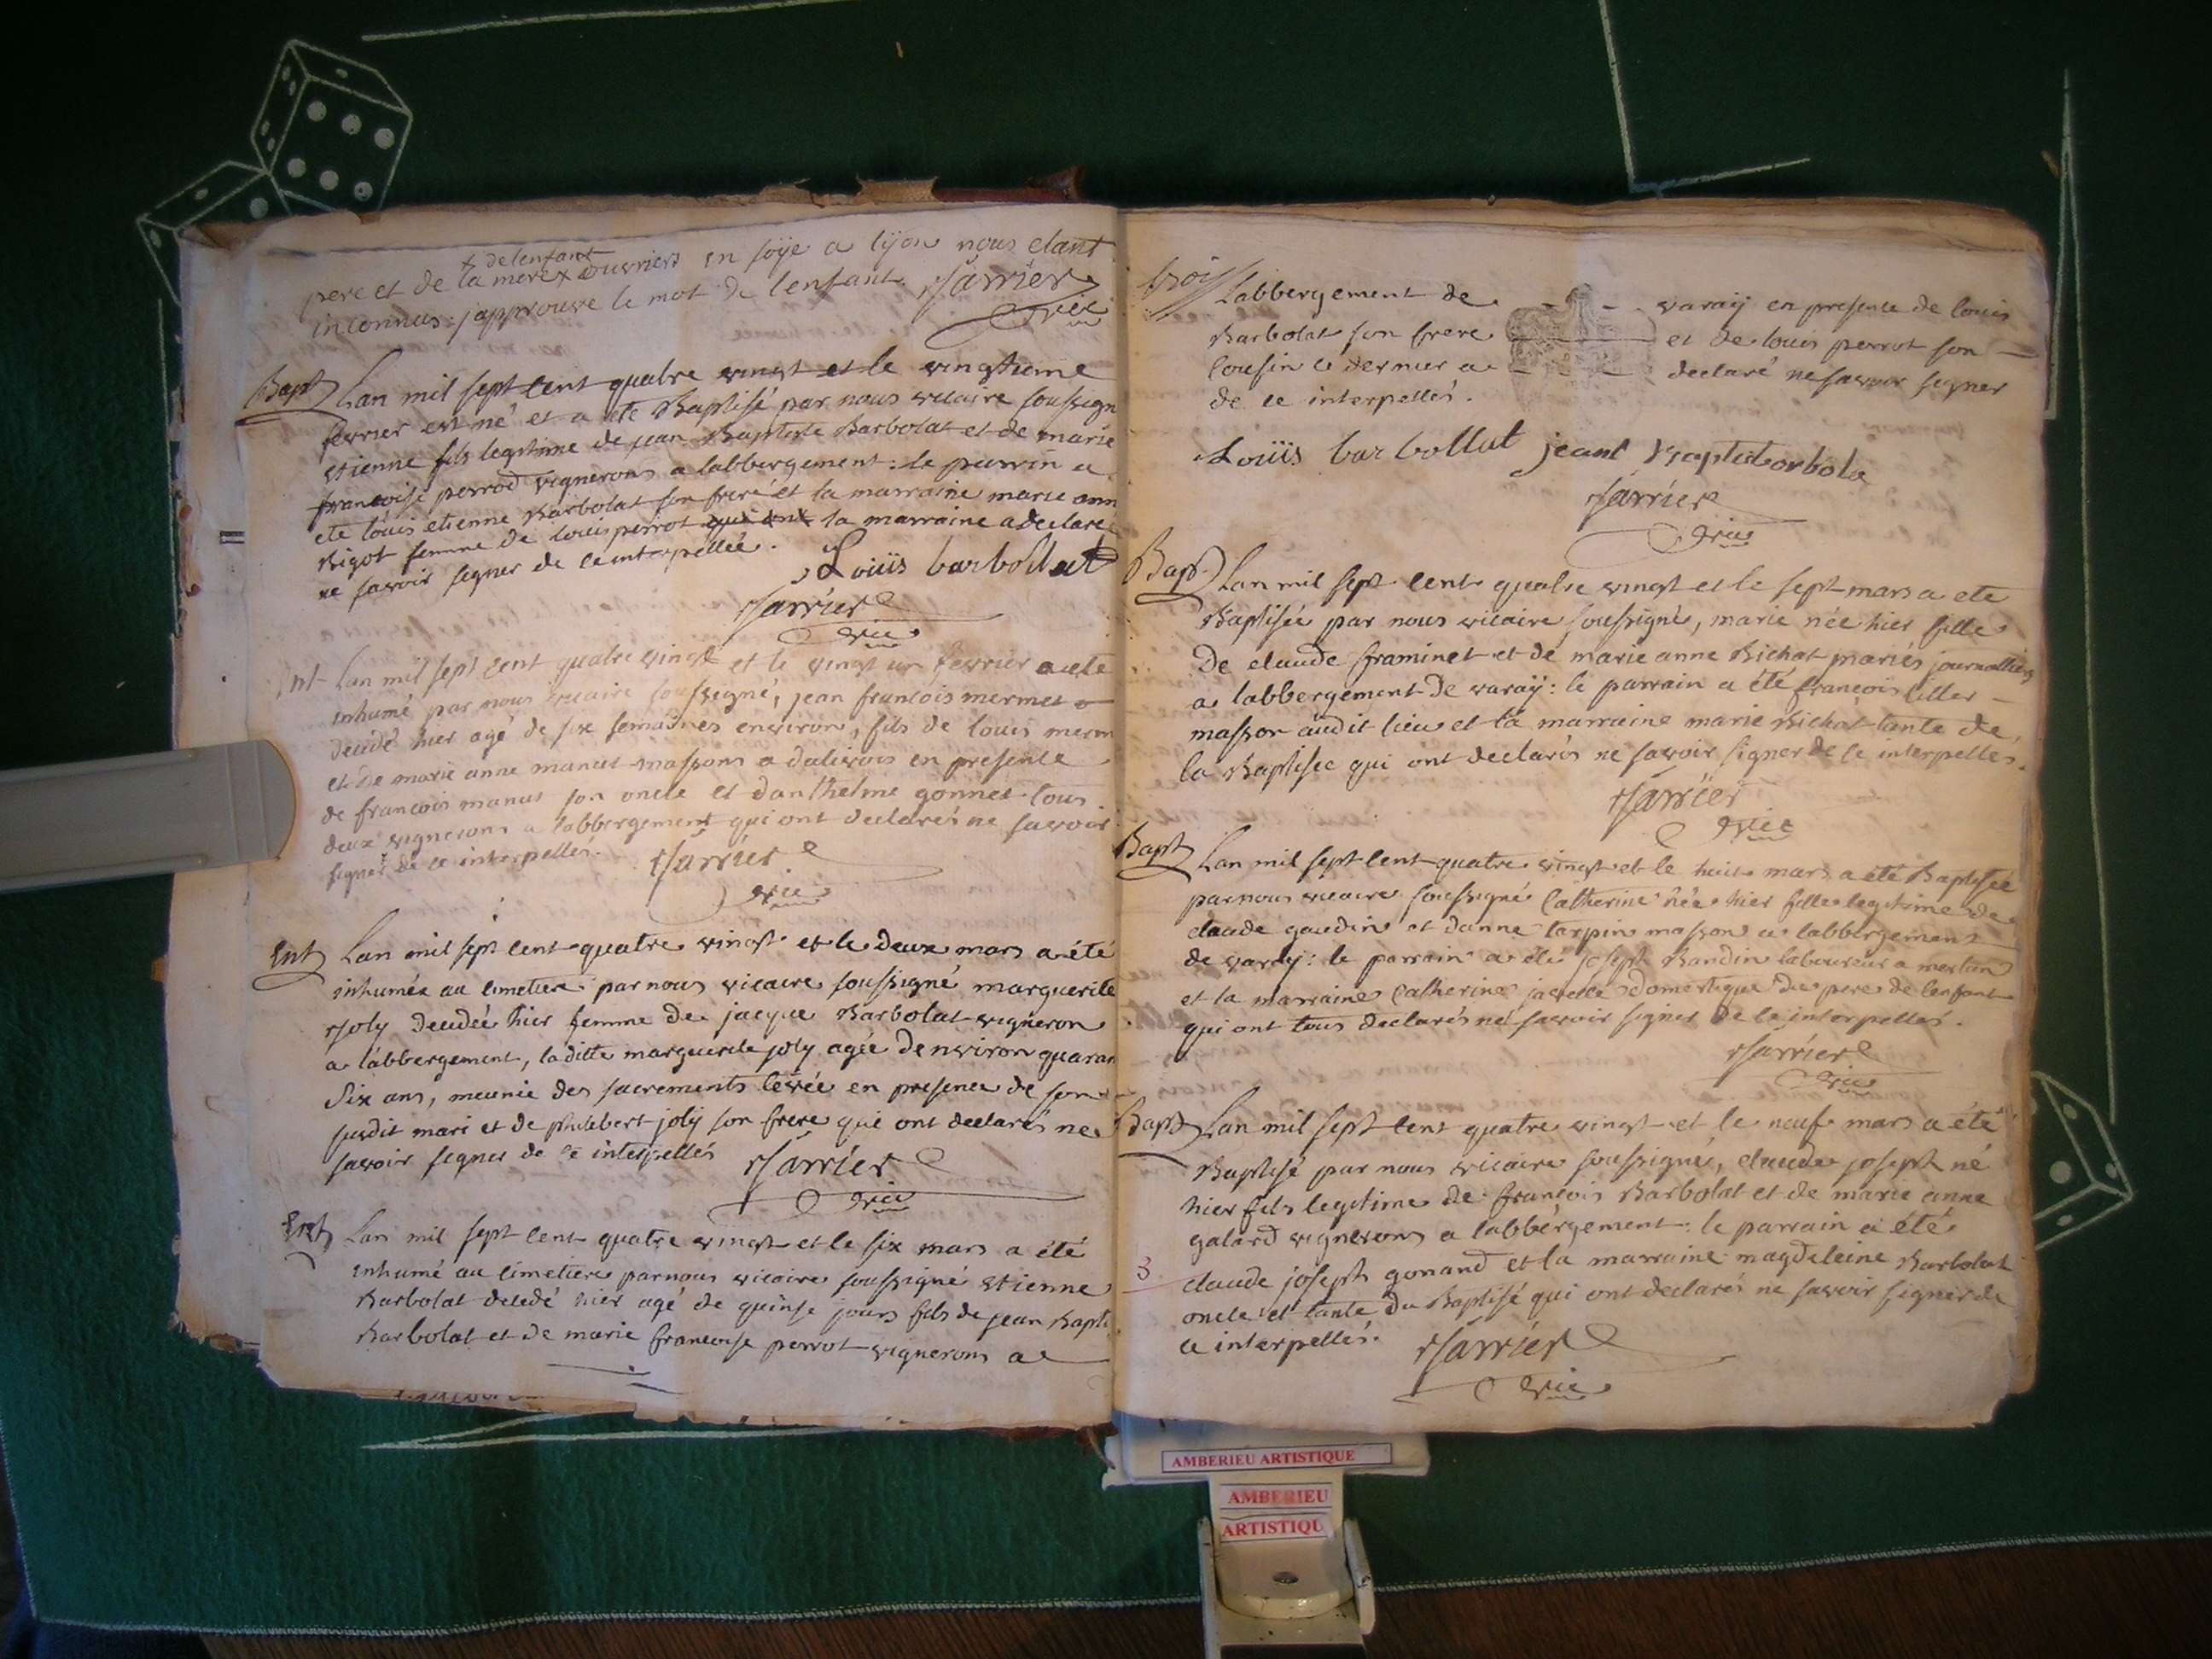 x de lenfant
pere et de la mere x ouvriers en soÿe a lÿon nous etant
inconnus: japprouve le mot de lenfant. Sarrier
vic
Bapt Lan mil sept cent quatre vingt et le vingtieme
fevrier est né et a été Baptisé par nous vicaire soussign
etienne fils legitime de jean Baptiste Barbolat et de marie
francoise perrod vignerons a labbergement: le parrin a
ete louis etienne Barbolat son frere et la marraine marie ann
Bigot femme de louis perrot qui ont la marraine a declaré
ne savoir signer de ce interpellée. Loüis barbollat
Sarrier
vic
Ent Lan mil sept cent quatre vingt et le vingt un fevrier a eté
inhumé par nous vicaire soussigné, jean francois mermet
decedé hier agé de six semaines environ, fils de louis merm
et de marie anne manus massons a dalivois en presence
de francois manus son oncle et danthelme gonnet tous
deux vignerons a labbergement qui ont declarés ne savoir
signer de ce interpellés. Sarrier
vic
Ent Lan mil sept cent quatre vingt et le deux mars a été
inhumée au cimetiere par nous vicaire soussigné marguerite
Joly decedée hier femme de jacque Barbolat vigneron
a labbergement, laditte marguerite joly agée denviron quaran
six ans, meunie des sacrements levée en presence de son
susdit mari et de philibert joly son frere qui ont declarés ne
savoir signer de ce interpellés Sarrier
vic
Ent Lan mil sept cent quatre vingt et le six mars a été
inhumé au cimetiere par nous vicaire soussigné etienne
Barbolat decedé hier agé de quinse jours fils de jean Bapti
Barbolat et de marie francoise perrot vignerons a
trois Labbergement de varaÿ en presence de louis
Barbolat son frere et de louis perrot son
cousin ce dernier a declaré ne savoir signer
de ce interpellés.
Loüis barbollat jeant Baptistorbola
Sarrier
vic
Bapt. Lan mil sept cent quatre vingt et le sept mars a eté
Baptisée par nous vicaire soussigné, marie née hier fille
de claude framinet et de marie anne Bichat mariés journalliers
a labbergement de varaÿ: le parrain a été francois
masson audit lieu et la marraine marie Bichat tante de
la Baptisée qui ont declarés ne savoir signer de ce interpellés.
Sarrier
vic
Bapt Lan mil sept cent quatre vingt et le huit mars a été Baptisée
par nous vicaire soussigné Catherine née hier fille legitime de
claude gaudin et danne tarpin masson a labbergement
de varaÿ: le parrain a été joseph Bandin laboureur a merlan
et la marraine Catherine domestique du pere de lenfant
qui ont tous declarés ne savoir signer de ce interpellés.
Sarrier
vic
Bapt Lan mil sept cent quatre vingt et le neuf mars a été
Baptisé par nous vicaire soussigné, claude joseph né
hier fils legitime de françois Barbolat et de marie anne
galard vignerons a labbergement: le parrain a été
3 claude joseph gonand et la marraine magdeleine Barbolat
oncle et tante du Baptisé qui ont declarés ne savoir signer de
ce interpellés. Sarrier
vic
AMBERIEU ARTISTIQUE
AMBERIEU
ARTISTIQU